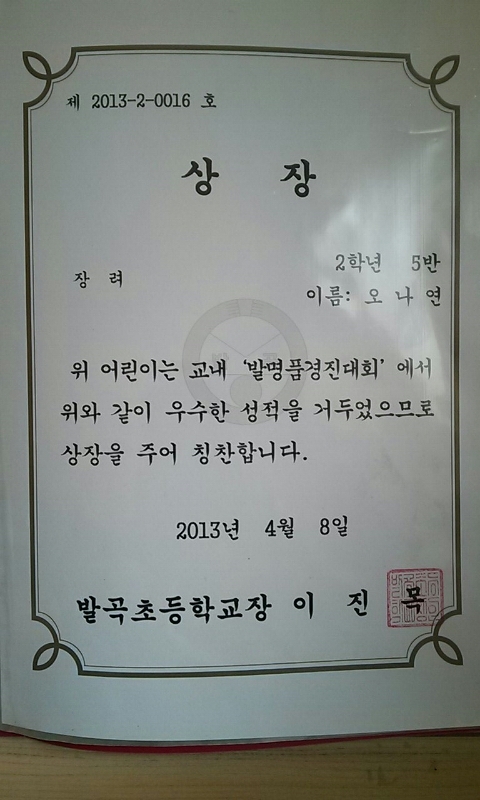 제 2013-2-0016 호
상 장
장 려
2학년 5반
이름: 오 나 연
위 어린이는 교내 '발명품경진대회' 에서
위와 같이 우수한 성적을 거두었으므로
상장을 주어 칭찬합니다.
2013년 4월 8일
발곡초등학교장 이 진 목